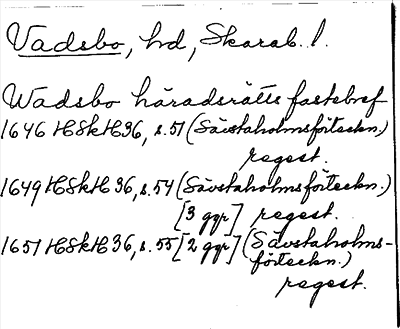 Vadsbo, hd, Skarab. l.
Wadsbo häradsrätts fastebref
1646 HSkH36, s.51 (Säfstaholmsförteckn.)
regest.
1649 HSkH 36, s.54 (Säfstaholmsförteckn.)
[3 ggr] regest.
1651 HSkH36, s.55 [2 ggr] (Säfstaholms-
förteckn.)
regest.